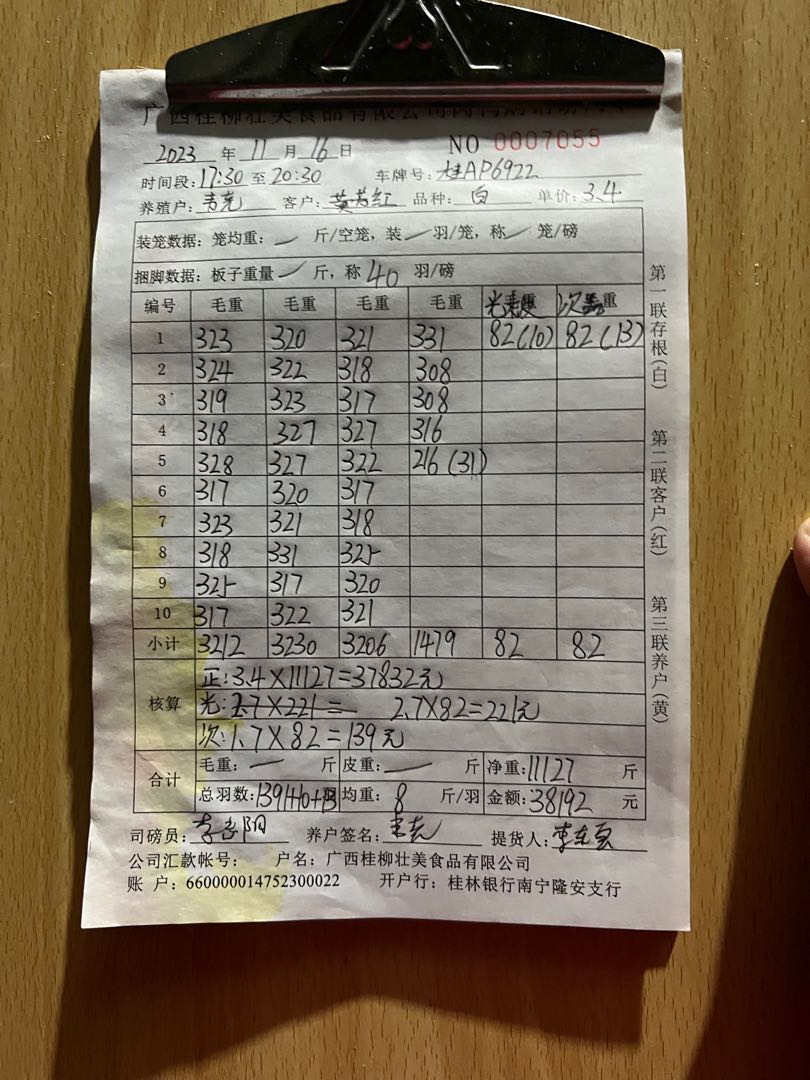 广西桂柳壮美食品有限公司
NO 0007055
2023 年 11 月 16 日
时间段: 17:30 至 20:30 车牌号: 桂AP6922
养殖户: 韦克 客户: 黄若红 品种: 白 单价: 3.4
装笼数据: 笼均重: — 斤/空笼, 装 — 羽/笼, 称 — 笼/磅
捆脚数据: 板子重量 — 斤, 称 40 羽/磅
编号 毛重 毛重 毛重 毛重 光 重 次 重
1 323 320 321 331 82(10) 82(13)
2 324 322 318 308
3 319 323 317 308
4 318 327 327 316
5 328 327 322 216(31)
6 317 320 317
7 323 321 318
8 318 331 325
9 325 317 320
10 317 322 321
小计 3212 3230 3206 1479 82 82
核算
正: 3.4×11127=37832元
光: 2.7×221= 2.7×82=221元
次: 1.7×82=139元
合计
毛重: — 斤 皮重: — 斤 净重: 11127 斤
总羽数: 1391+10+13 羽 均重: 8 斤/羽 金额: 38192 元
司磅员: 养户签名: 提货人:
公司汇款帐号: 户名: 广西桂柳壮美食品有限公司
账 户: 660000014752300022 开户行: 桂林银行南宁隆安支行
第一联存根(白)
第二联客户(红)
第三联养户(黄)